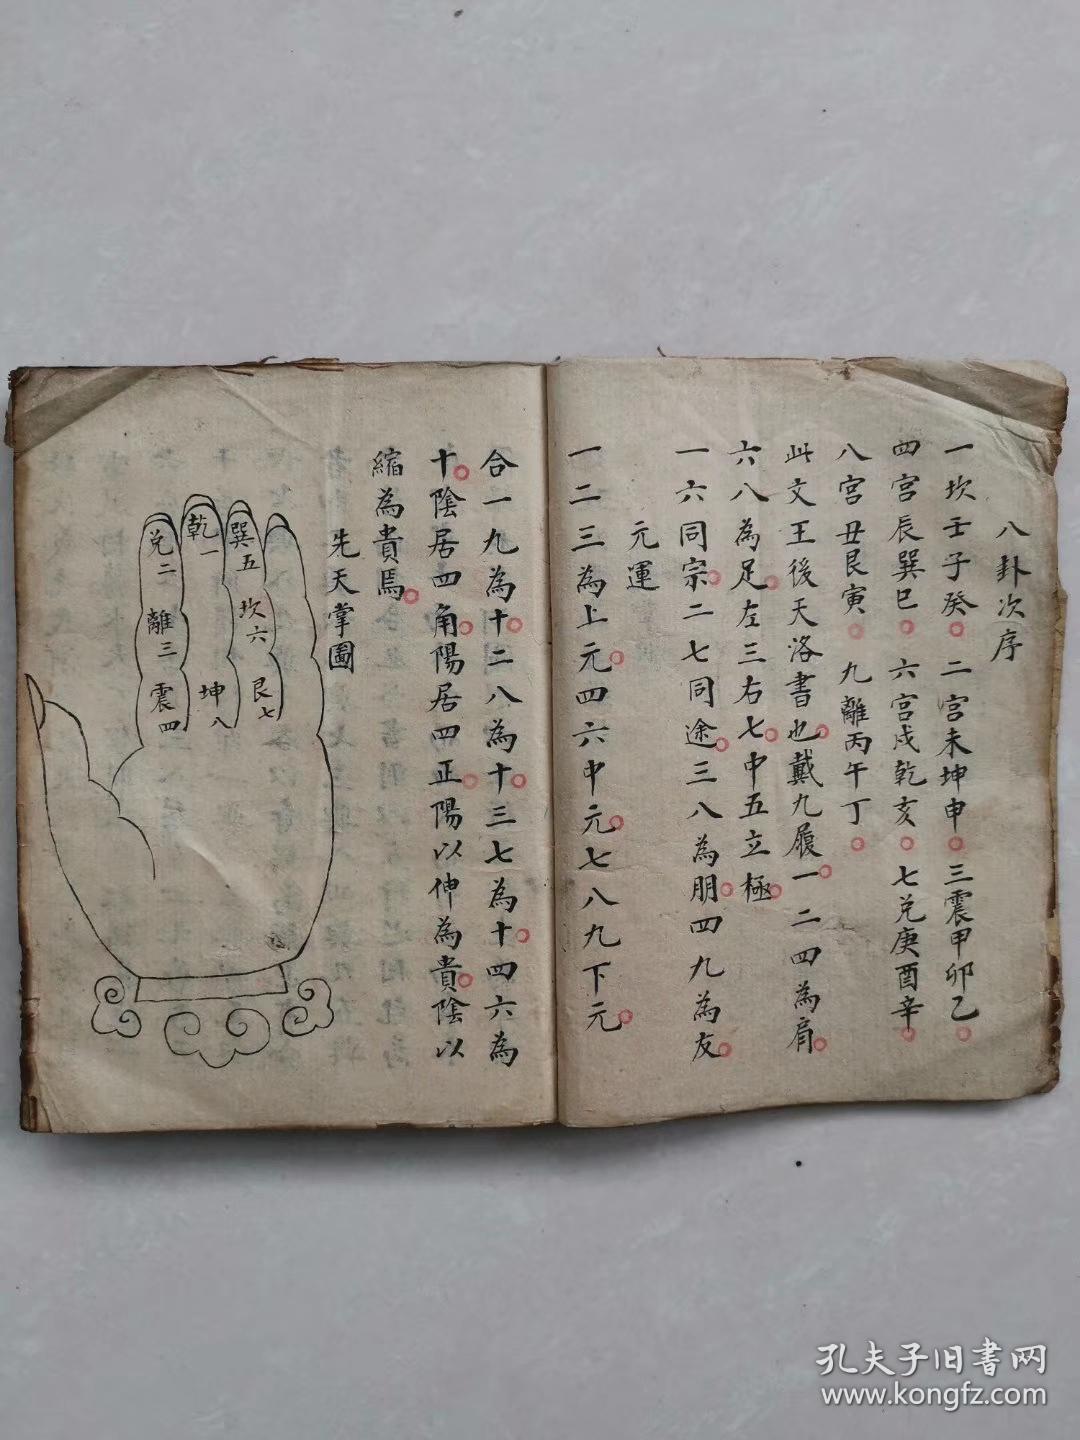 八卦次序
一坎壬子癸。二宮未坤申。三震甲卯乙。
四宮辰巽巳。六宮戍乾亥。七兌庚酉辛。
八宮丑艮寅。九離丙午丁。
此文王後天洛書也。戴九履一。二四為肩。
六八為足。左三右七。中五立極。
一六同宗。二七同途。三八為朋。四九為友。
元運
一二三為上元。四六中元。七八九下元。
合一九為十。二八為十。三七為十。四六為
十。陰居四角。陽居四正。陽以伸為貴。陰以
縮為貴焉。
先天掌圖
巽五
坎六
艮七
乾一
坤八
兌二
離三
震四
孔夫子旧書网
www.kongfz.com